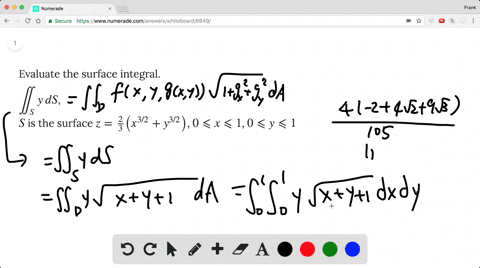 Numerade
Frank
https://www.numerade.com/answers/whiteboard/6649/
1
Evaluate the surface integral.
∬_S y dS, = ∬_D f(x, y, g(x,y)) √(1+g_x²+g_y²) dA
S is the surface z = 2/3 (x^{3/2} + y^{3/2}), 0 ⩽ x ⩽ 1, 0 ⩽ y ⩽ 1
4(-2+4√2+9√3)
105
= ∬_S y dS
= ∬_D y √(x+y+1) dA = ∫_0^1 ∫_0^1 y √(x+y+1) dx dy
A